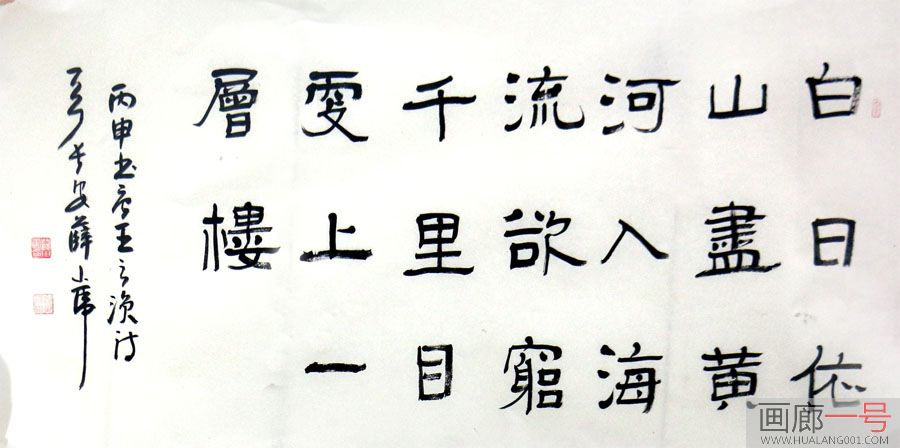 白日依
山盡黄
河入海
流欲窮
千里目
更上一
層樓
丙申书唐王之渙诗
长安薛小虎
画廊一号
WWW.HUALANG001.COM